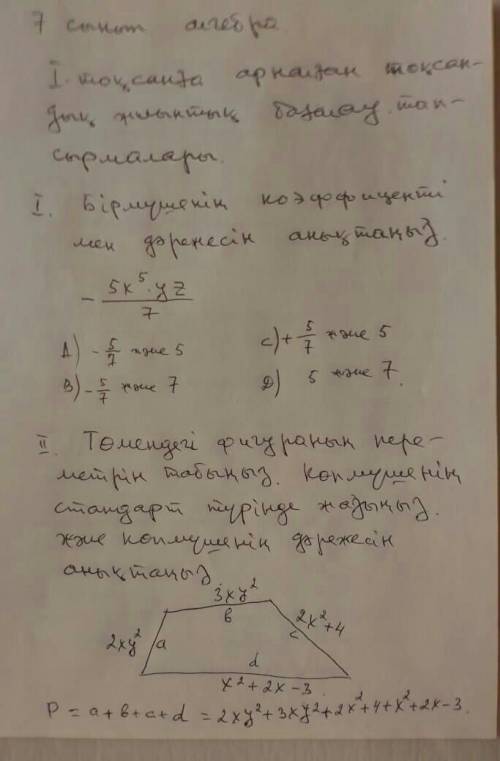 7 сынып алгебра
I. тоқсанға арналған тоқсан-
дық жиынтық бағалау тап-
сырмалары.
I. Бірмүшенің коэффиценті
мен дәрежесін анықтаңыз.
- 5x⁵·yz / 7
A) - 5/7 және 5 C) + 5/7 және 5
B) - 5/7 және 7 D) 5 және 7.
II. Төмендегі фигураның пере-
метрін табыңыз. Көпмүшенің
стандарт түрінде жазыңыз.
және көпмүшенің дәрежесін
анықтаңыз
3xy²
b
2xy² a c 2x²+4
d
x²+2x-3
P = a+b+c+d = 2xy²+3xy²+2x²+4+x²+2x-3.